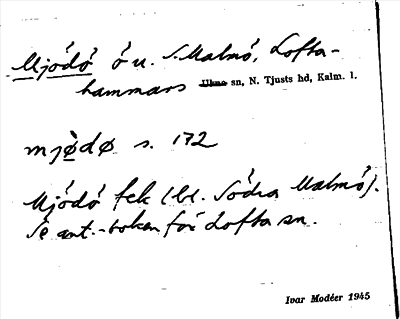 Mjödö ö u. S. Malmö, Lofta-
hammars Ukna sn, N. Tjusts hd, Kalm. l.
mjø̀dø s. 172
Mjödö fek (bl. Södra Malmö).
Se ant.-boken för Lofta sn.
Ivar Modéer 1945